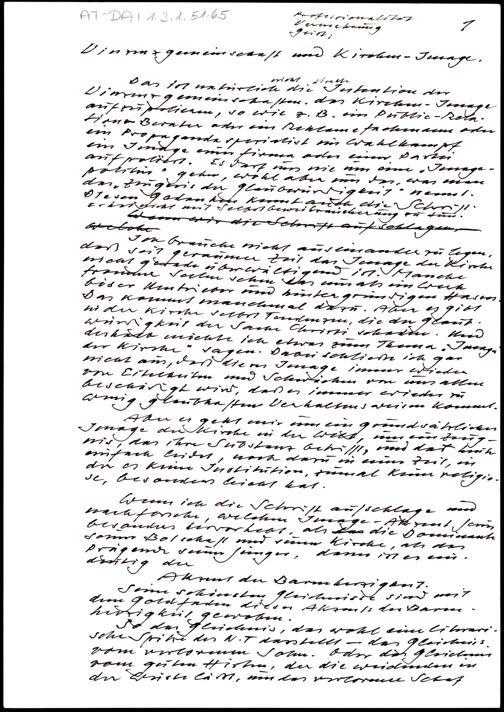 AT-DA 1.3.1.51.65
Professionalität
Vermehrung
Geist,
1
Vinzenzgemeinschaft und Kirchen-Image.
Das ist natürlich die Intention der
nicht direkt
Vinzenzgemeinschaften das Kirchen-Image
aufzupolieren, so wie z.B. ein Public-Rela-
tions-Berater oder ein Reklamefachmann oder
ein Propagandaspezialist im Wahlkampf
ein Image einer Firma oder einer Partei
aufpoliert. Es darf uns nie um eine "Image-
politur" gehn, wohl aber um das, was man
das "Zeugnis der Glaubwürdigkeit" nennt.
Diesen Gedanken kennt auch die Schrift
mit Selbstbeweihräucherung zu tun.
Wenn wir die Schrift aufschlagen,
welche
Ich brauche nicht auseinander zu legen,
daß seit geraumer Zeit das Image der Kirche
nicht gerade überwältigend ist. Manche
fromme Seelen sehen das nur als ein Werk
böser Hintertreiber und hintergründigen Hasses.
Das kommt manchmal dazu. Aber es gibt
in der Kirche selbst Tendenzen, die der Glaub-
würdigkeit der Sache Christi schaden. Und
deshalb möchte ich etwas zum Thema "Image
der Kirche" sagen. Dabei schließe ich gar
nicht aus, daß dieses Image immer wieder
von Eitelkeiten und Schwächen von uns allen
beschädigt wird, daß es immer wieder zu
wenig glaubhaften Verhaltensweisen kommt.
Aber es geht mir um ein grundsätzliches
Image der Kirche in der Welt, um ein Zeug-
nis, das ihre Substanz betrifft, und das nicht
einfach leidet, noch dazu in einer Zeit, in
der es keine Institution, zumal keine religiö-
se, besonders leicht hat.
Wenn ich die Schrift aufschlage und
nachforsche, welchen Image-Akzent Jesus
besonders hervorhebt, als die Dominante
seiner Botschaft und seiner Kirche, als das
Prägende seiner Jünger, dann ist es ein-
deutig der
Akzent der Barmherzigkeit.
Seine schönsten Gleichnisse sind mit
dem Goldfaden dieses Akzents der Barm-
herzigkeit gewoben.
So das Gleichnis, das wohl eine literari-
sche Spitze des N.T. darstellt – das Gleichnis
vom verlorenen Sohn. Oder das Gleichnis
vom guten Hirten, der die neunundneunzig in
der Wüste läßt, um das verlorene Schaf